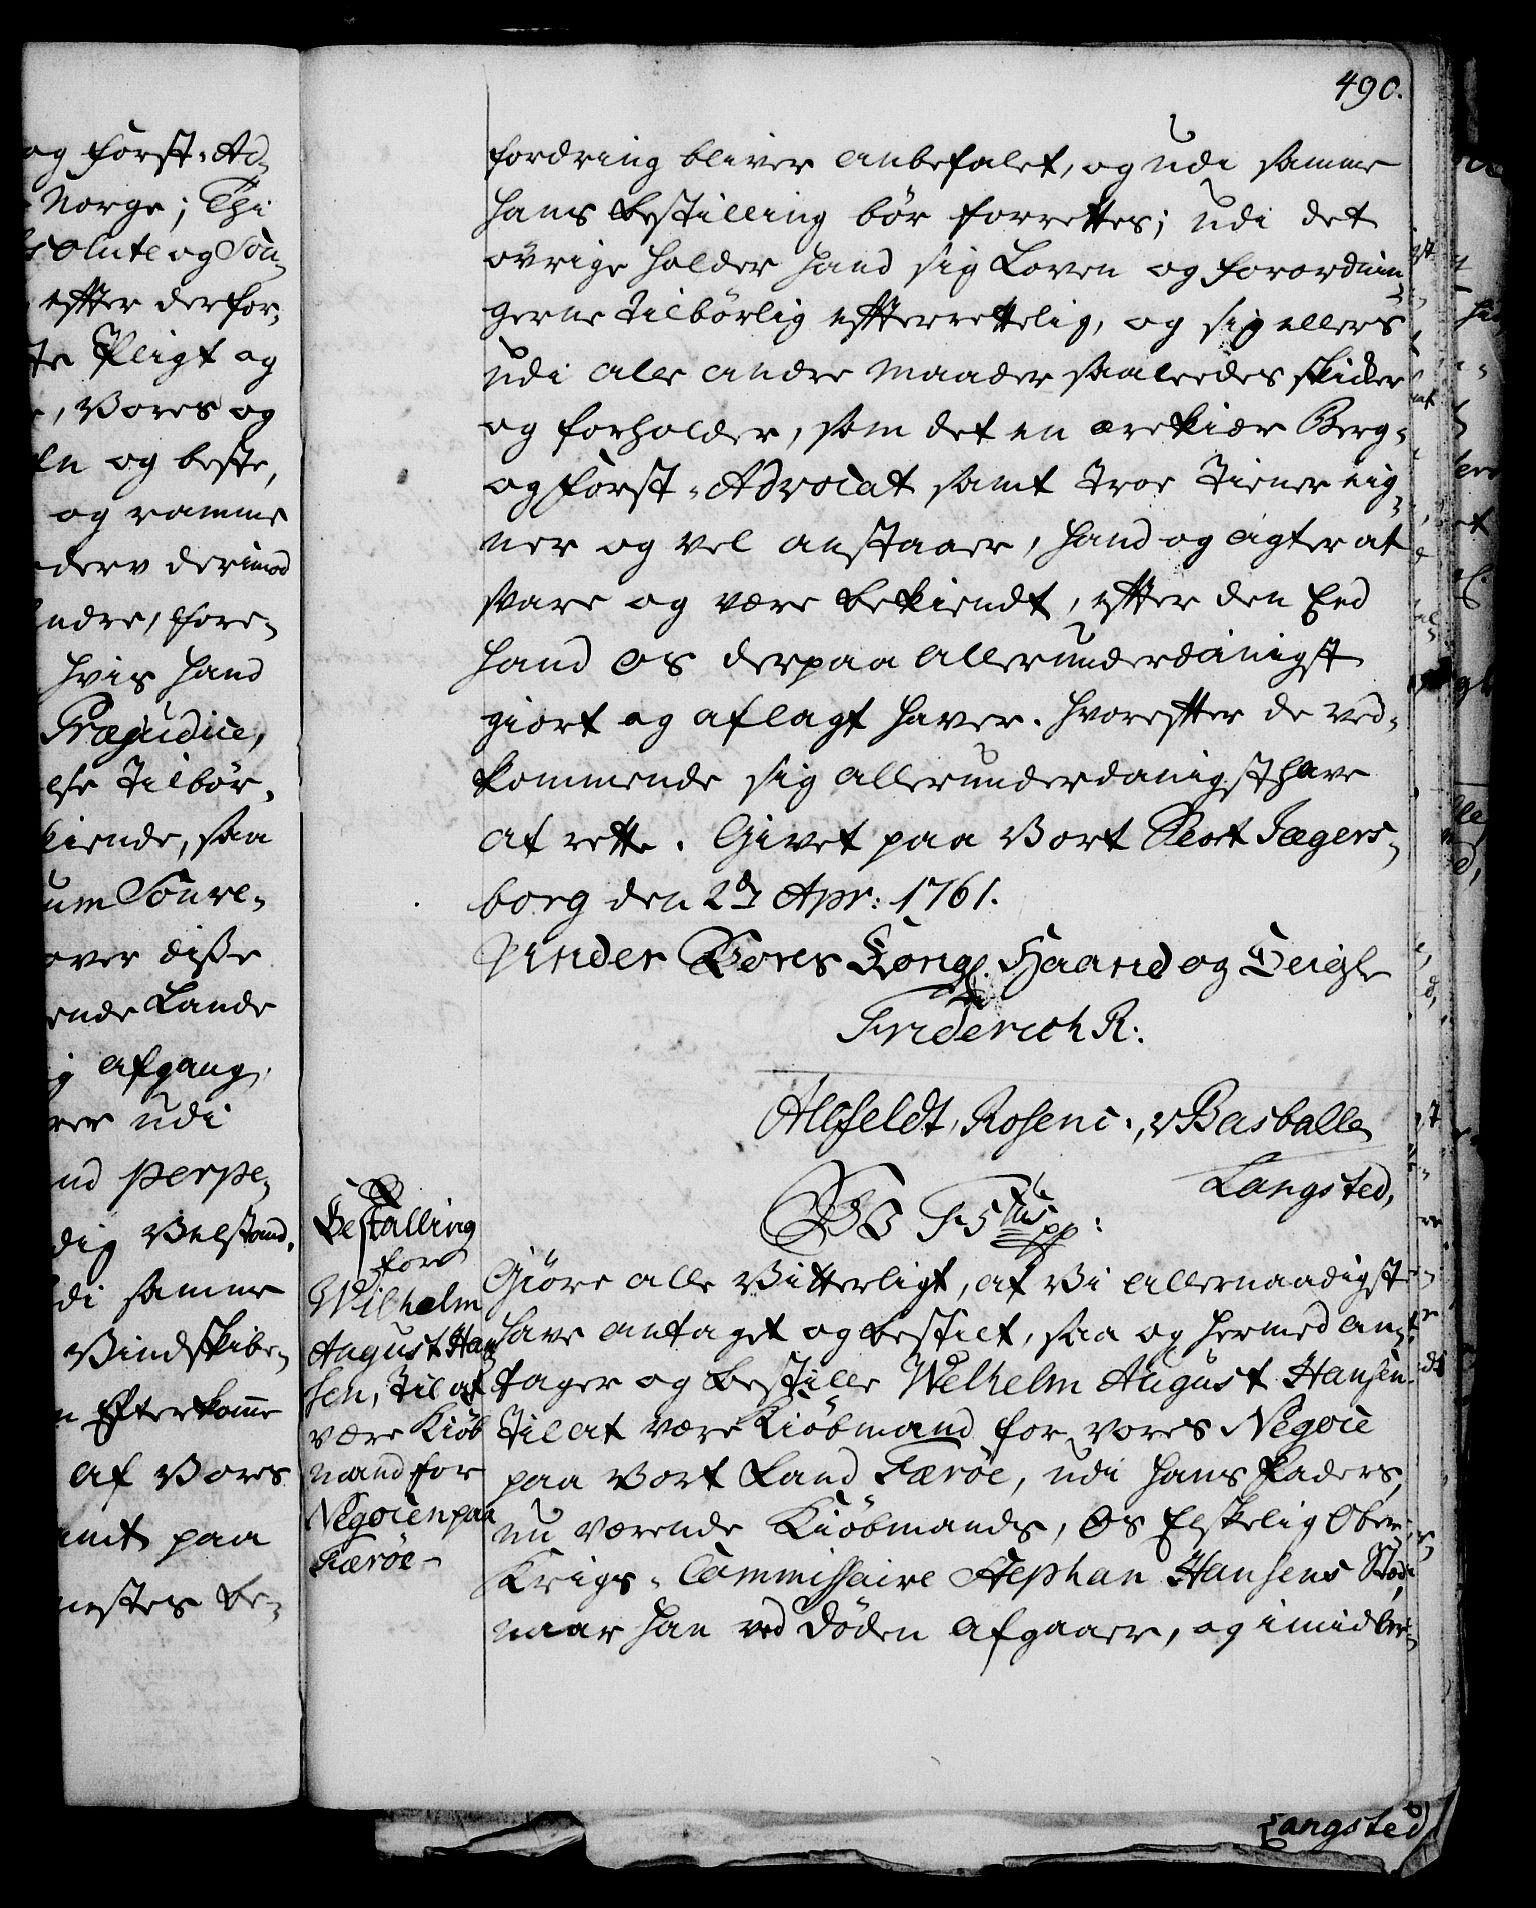 490.
og Forst-Ad-
Norge; Thi
solute og Sou-
effter derfor-
te Pligt og
, Vores og
og beste,
og ramme
derv derimod
ndre, fore-
hvis hand
Præjudice,
else tilbør-
kiende, saa
um Souve-
over disse
ende Lande
g afgang,
rer udi
nd perpe-
dig Velstand,
di samme
Vindskibe-
Efterkomme
af Vores
amt paa
nestes be-
fordring bliver anbefalet, og udi samme
hans Bestilling bør forrettes; udi det
øvrige holder hand sig Loven og Forordnin-
gerne tilbørlig effterrettelig, og sig ellers
udi alle andre maader saaledes skicker
og forholder, som det en ærekiær Berg-
og Forst-Advocat samt troe tiener eig-
ner og vel anstaaer, hand og agter at
svare og være bekiendt, effter den Eed
hand os derpaa allerunderdanigst
giort og aflagt haver. Hvoreffter de ved-
kommende sig allerunderdanigst have
at rette. Givet paa Vort Slot Jægers-
borg den 2den Apr: 1761.
Under Vores Kongl. Haand og Seigle
Friderich R:
Ahlfeldt, Rosenc:, v Basballe
Langsted,
Bestalling
for
Wilhelm
August Han
sen, til at
være Kiøb
mand for
Negocien paa
Færøe-
VV F 5tus pp:
Giøre alle Vitterligt, at Vi allernaadigst
have antaget og bestilt, saa og hermed an-
tager og bestille Welhelm August Hansen
til at være Kiøbmand for vores Negocie
paa Vort Land Færøe, udi hans Faders,
nu værende Kiøbmands, Os Elskelig Ober-
Krigs-Commissaire Stephan Hansens Sted,
naar han ved Døden afgaaer, og imidler-
Langsted,